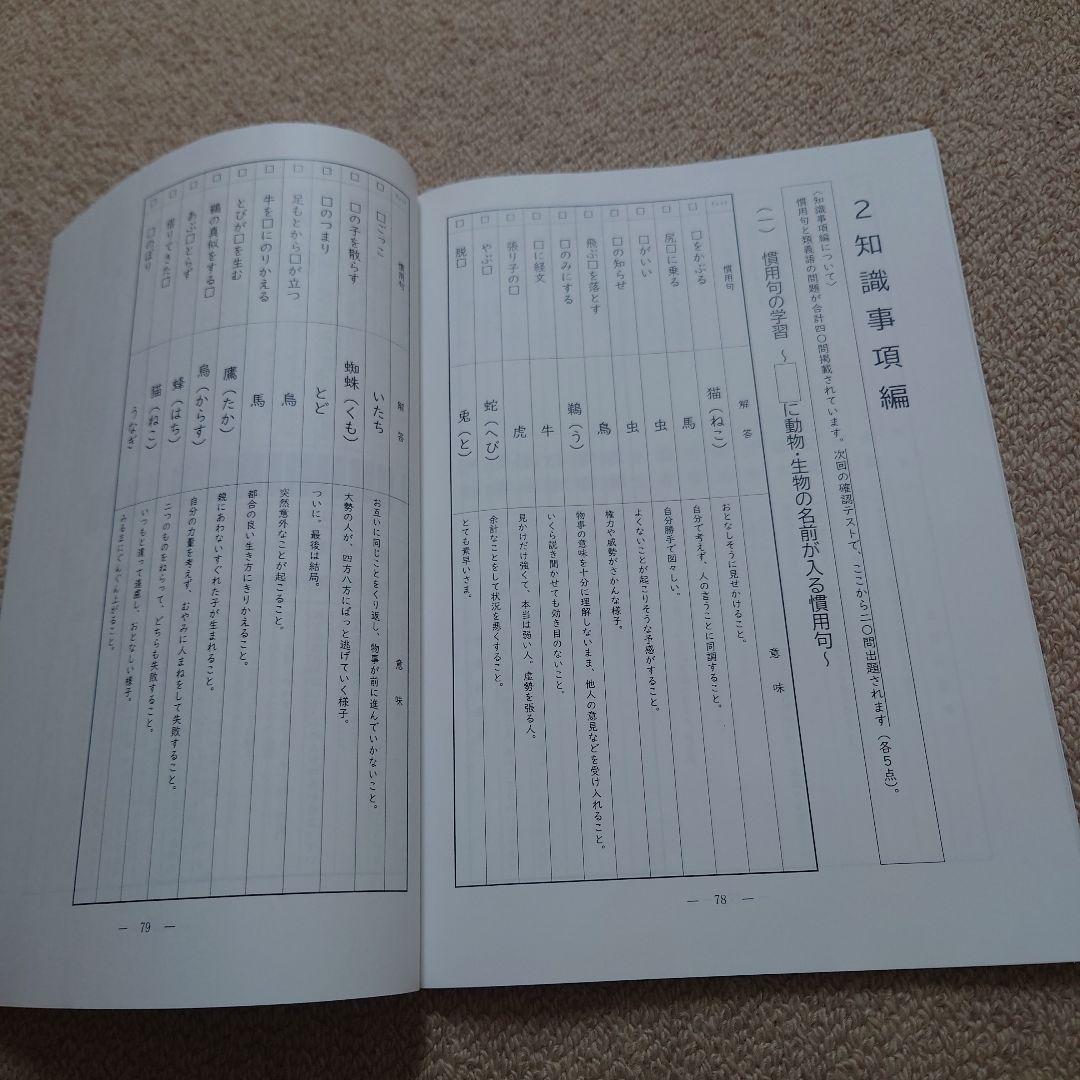 2 知識事項編
〈知識事項編について〉
慣用句と類義語の問題が合計四〇問掲載されています。次回の確認テストで、ここから二〇問出題されます(各5点)。
(一) 慣用句の学習 ～□に動物・生物の名前が入る慣用句～
慣用句 解答 意味
□ □をかぶる 猫(ねこ) おとなしそうに見せかけること。
□ 尻□に乗る 馬 自分で考えず、人の言うことに同調すること。
□ □がいい 虫 自分勝手で図々しい。
□ □の知らせ 虫 よくないことが起こりそうな予感がすること。
□ 飛ぶ□を落とす 鳥 権力や威勢がさかんな様子。
□ □のみにする 鵜(う) 物事の意味を十分に理解しないまま、他人の意見などを受け入れること。
□ □に経文 牛 いくら説き聞かせても効き目のないこと。
□ 張り子の□ 虎 見かけだけ強くて、本当は弱い人。虚勢を張る人。
□ やぶ□ 蛇(へび) 余計なことをして状況を悪くすること。
□ 脱□ 兎(と) とても素早いさま。
― 78 ―
慣用句 解答 意味
□ □ごっこ いたち お互いに同じことをくり返し、物事が前に進んでいかないこと。
□ □の子を散らす 蜘蛛(くも) 大勢の人が、四方八方にぱっと逃げていく様子。
□ □のつまり とど ついに。最後は結局。
□ 足もとから□が立つ 鳥 突然意外なことが起こること。
□ 牛を□にのりかえる 馬 都合の良い生き方にきりかえること。
□ とびが□を生む 鷹(たか) 親にあわないすぐれた子が生まれること。
□ 鵜の真似をする□ 烏(からす) 自分の力量を考えず、むやみに人まねをして失敗すること。
□ あぶ□とらず 蜂(はち) 二つのものをねらって、どちらも失敗すること。
□ 借りてきた□ 猫(ねこ) いつもと違って遠慮し、おとなしい様子。
□ □のぼり うなぎ みるまにぐんぐん上がること。
― 79 ―